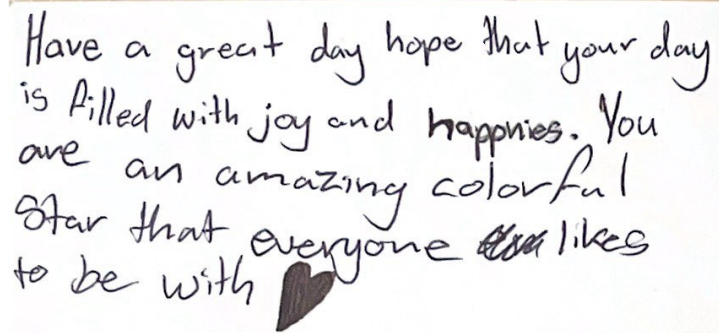 Have a great day hope that your day
is filled with joy and happnies. You
are an amazing colorful
Star that everyone likes
to be with